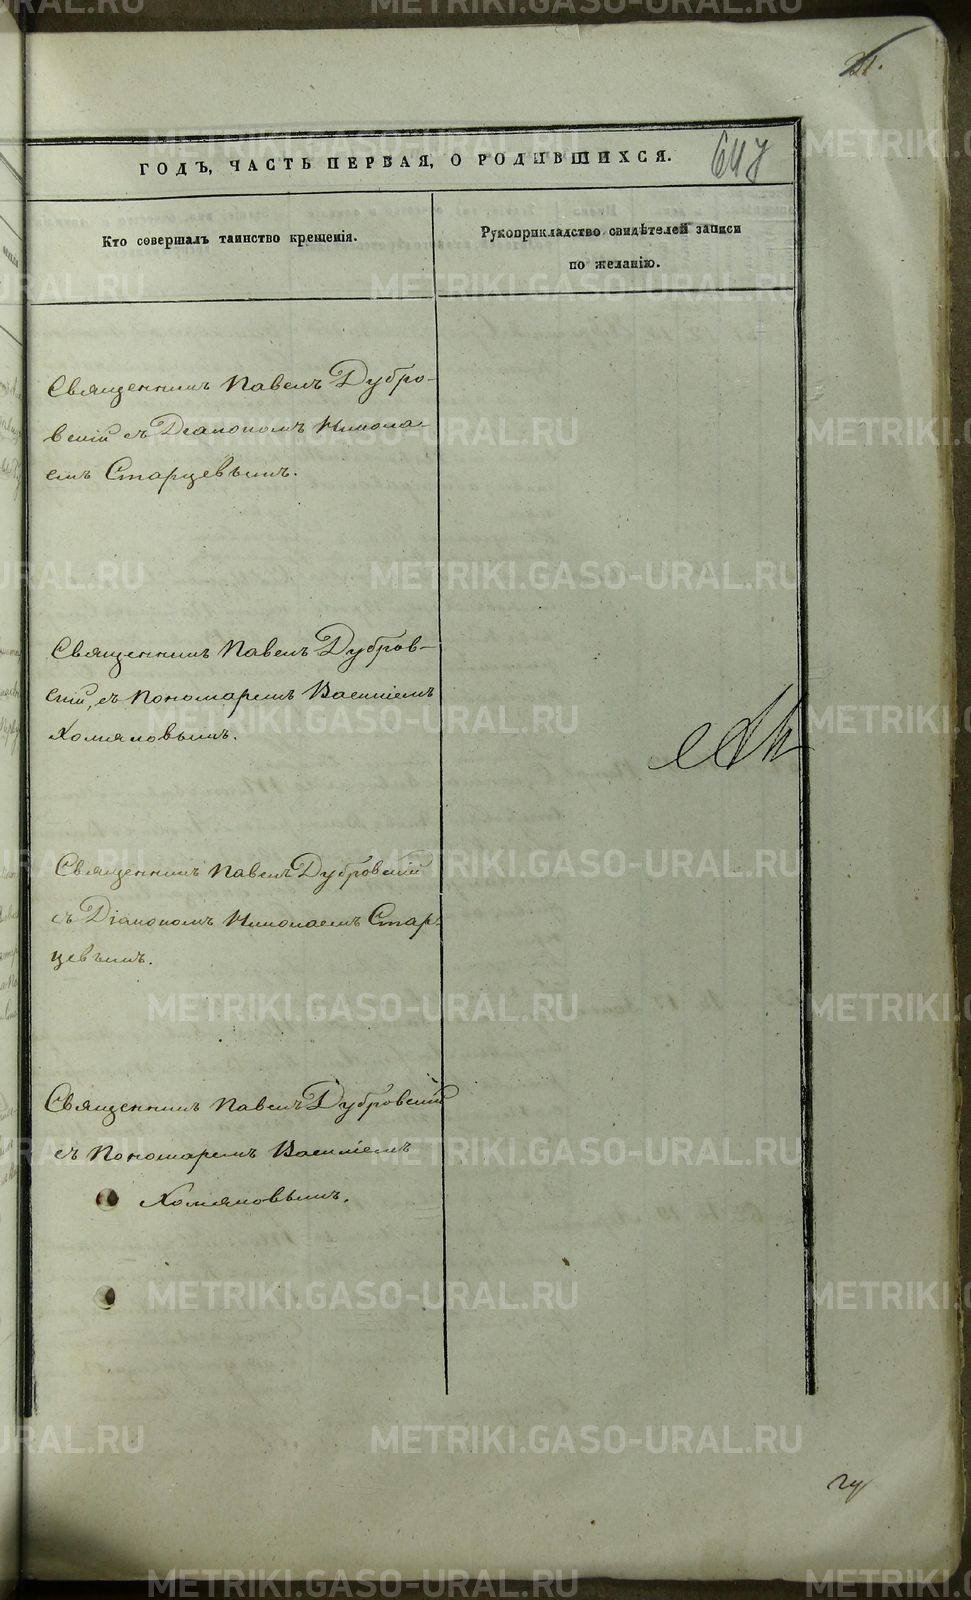 21.
ГОДЪ, ЧАСТЬ ПЕРВАЯ, О РОДИВШИХСЯ.
647
Кто совершалъ таинство крещенія.
Рукоприкладство свидѣтелей записи
по желанію.
Священникъ Павелъ Дубро-
вскій съ Діакономъ Никола-
емъ Старцевымъ.
Священникъ Павелъ Дубров-
скій, съ Пономаремъ Василіемъ
Хомяковымъ.
Священникъ Павелъ Дубровскій
съ Діакономъ Николаемъ Стар-
цевымъ.
Священникъ Павелъ Дубровскій
съ Пономаремъ Василіемъ
Хомяковымъ.
METRIKI.GASO-URAL.RU